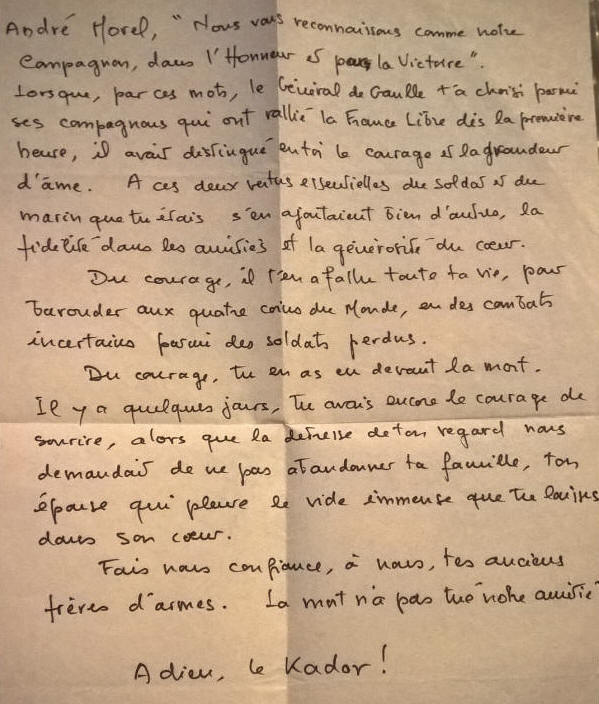 André Morel, "Nous vous reconnaissons comme notre
Compagnon, dans l'Honneur et par la Victoire".
Lorsque, par ces mots, le Général de Gaulle t'a choisi parmi
ses compagnons qui ont rallié la France Libre dès la première
heure, il avait distingué en toi le courage et la grandeur
d'âme. A ces deux vertus essentielles du soldat et du
marin que tu étais s'en ajoutaient bien d'autres, la
fidélité dans les amitiés et la générosité du cœur.
Du courage, il t'en a fallu toute ta vie, pour
barouder aux quatre coins du Monde, en des combats
incertains parmi des soldats perdus.
Du courage, tu en as eu devant la mort.
Il y a quelques jours, tu avais encore le courage de
sourire, alors que la détresse de ton regard nous
demandait de ne pas abandonner ta famille, ton
épouse qui pleure le vide immense que tu laisses
dans son cœur.
Fais nous confiance, à nous, tes anciens
frères d'armes. La mort n'a pas tué notre amitié
Adieu, le Kador !